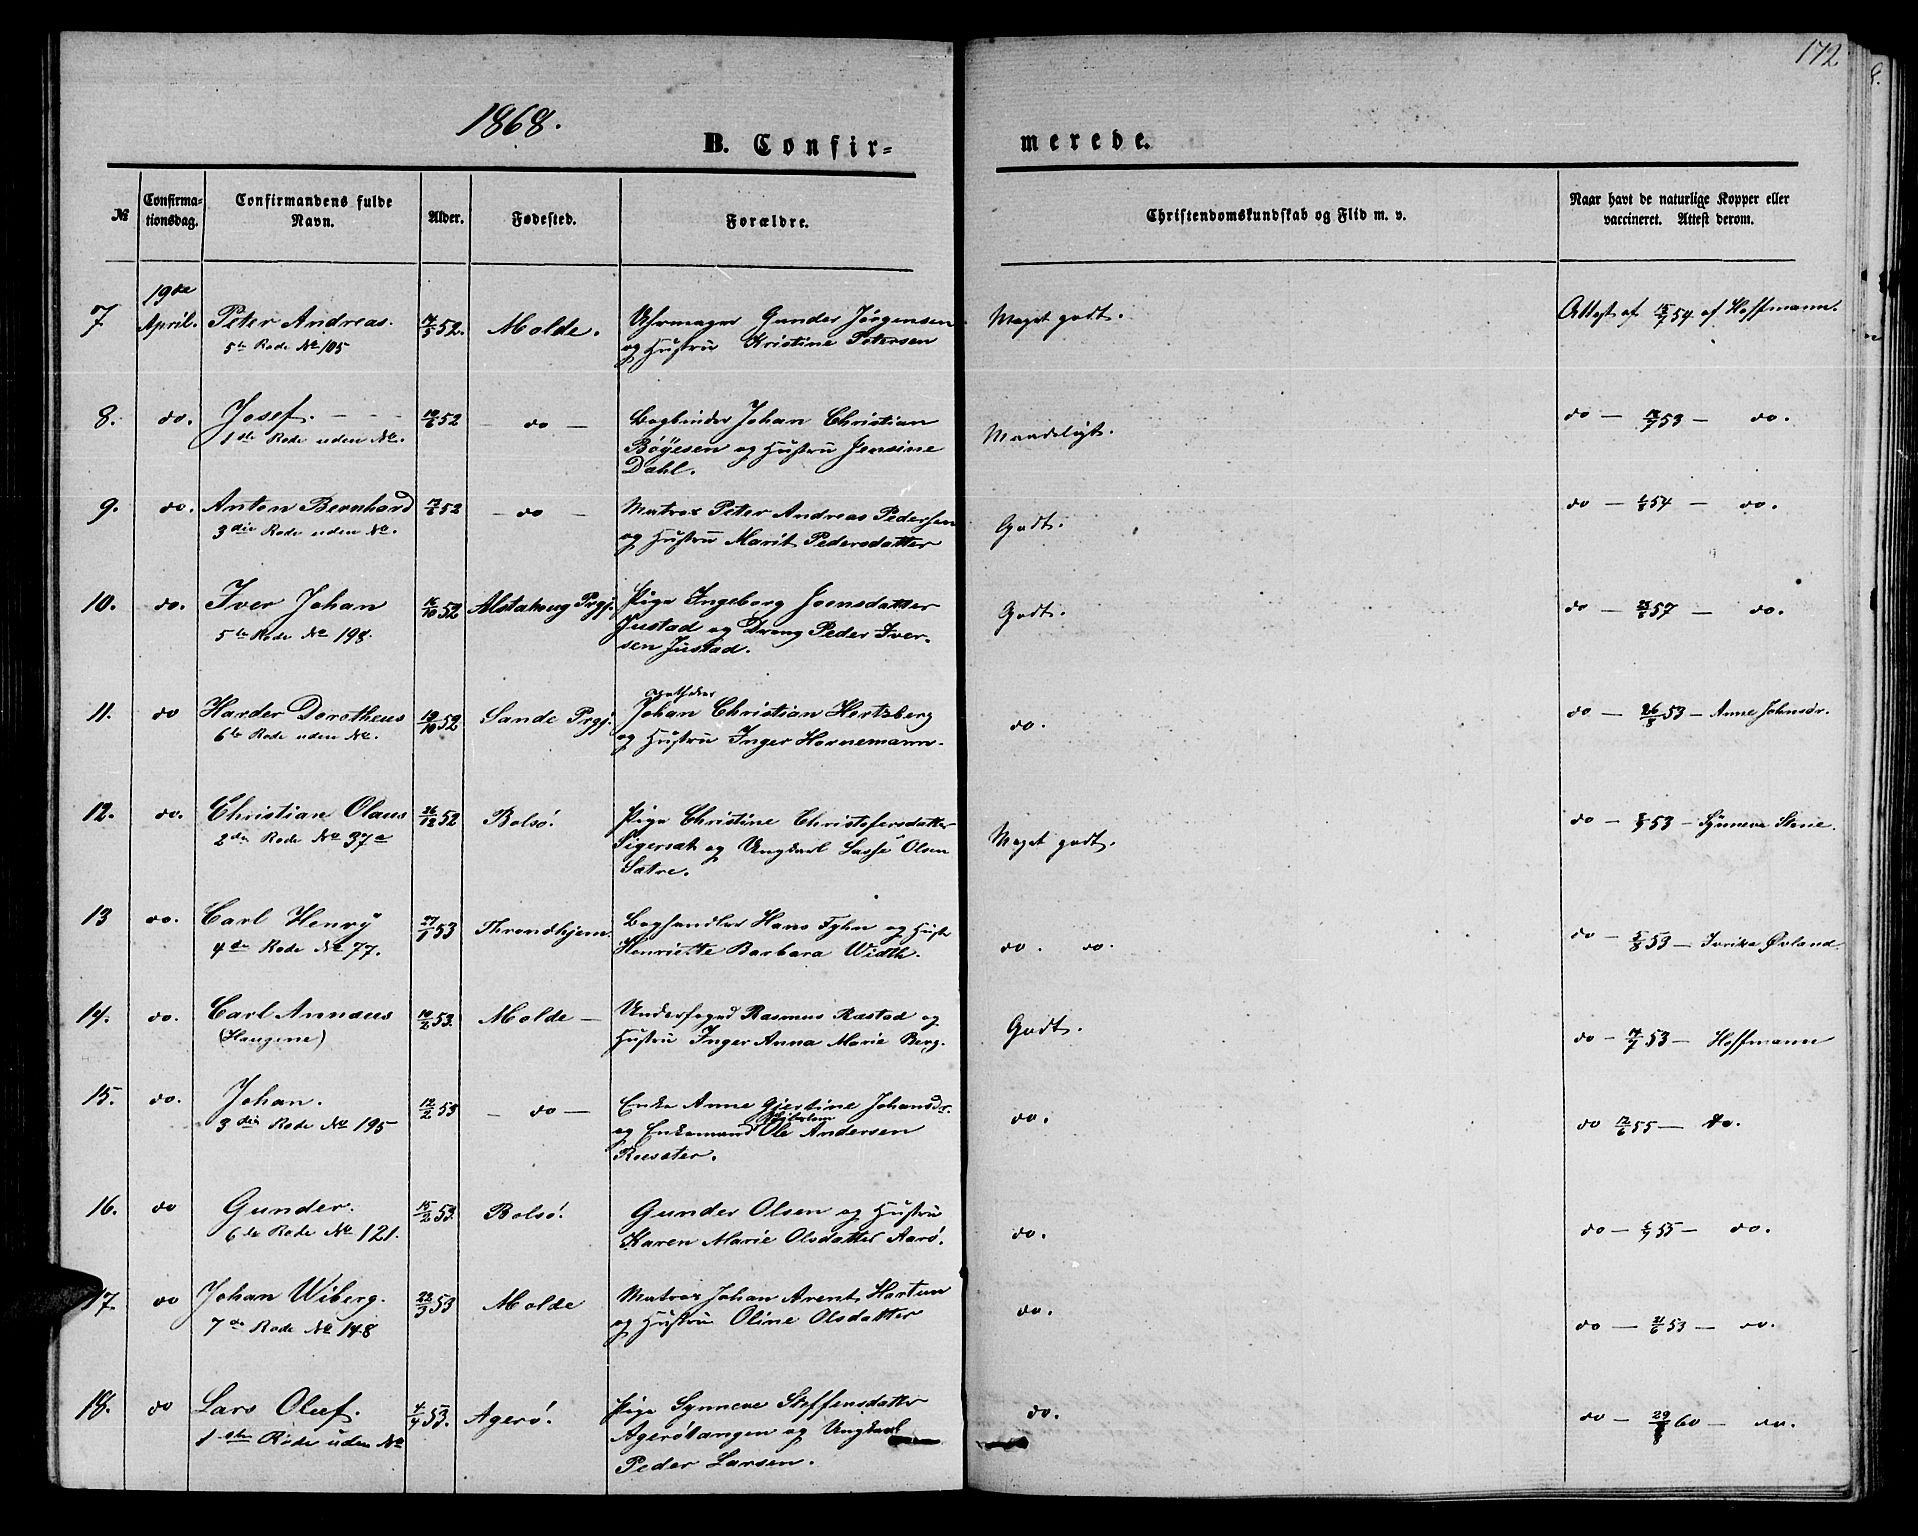 172
1868.
B. Confir=
merede.
№
Confirma-
tionsdag.
Confirmandens fulde
Navn.
Alder.
Fødested.
Forældre.
Christendomskundskab og Flid m. v.
Naar havt de naturlige Kopper eller
vaccineret. Attest derom.
7 19de April. Peter Andreas. 17/5 52. Molde. Uhrmager Gunder Jörgensen Meget godt. Attest af 15/7 54 af Hoffmann.
5te Rode No 105 og Hustru Kristine Petersen
8. do. Josef. - - - 10/6 52 - do - Bogbinder Johan Christian Maadeligt. do - 53 - do.
1ste Rode uden No. Böyesen og Hustru Jensine
Dahl.
9. do. Anton Bernhard 17/6 52 - do - Matros Peter Andreas Pedersen Godt. do - 54 - do.
3die Rode uden No. og Hustru Marit Pedersdatter
10. do. Iver Johan 16/10 52 Alstahoug Prgj. Pige Ingeborg Joensdatter Godt. do - 57 - do.
5te Rode No 198. Justad og Dreng Peder Iver-
sen Justad.
11. do Harder Dorotheus 19/10 52 Sande Prgj. Johan Christian Hertzberg do. do - 26/8 53 - Anne Johnsdr.
6te Rode uden No. og Hustru Inger Hornemann.
12. do. Christian Olaus 26/12 52 Bolsö. Pige Christine Christofersdatter Meget godt. do - 53 - Synneva Stene.
2den Rode No 37a og Ungkarl Lasse Olsen
Sætre.
13 do. Carl Henry 27/1 53 Throndhjem. Boghandler Hans Fyhn og Hust do. do. do - 5/8 53 - Øvland
4de Rode No 77. Henriette Barbara Width.
14. do. Carl Annæus 10/2 53. Molde - Underfoged Rasmus Rastad og Godt. do - 53 - Hoffmann
(Haugene) Hustru Inger Anna Marie Berg.
15. do. Johan. 12/2 53 - do - Enke Anne Gjertine Johansdr. do. do 12/6 55 - do.
3die Rode No 195 og Enkemand Ole Andersen
Roesæter.
16. do Gunder. 15/2 53. Bolsö. Gunder Olsen og Hustru do. do - 55 - do.
6te Rode No 121. Karen Marie Olsdatter Aarö.
17. do Johan Wiberg. 22/3 53 Molde Matros Johan Arent Hartun do. do - 21/6 53 - do.
7de Rode No 148 og Hustru Oline Olsdatter
18. do Lars Oluf. 4/4 53. Agerö. Pige Synneve Steffensdatter do. do - 29/8 60 - do.
1ste Rode uden No Agerötangen og Ungkarl
Peder Larsen.